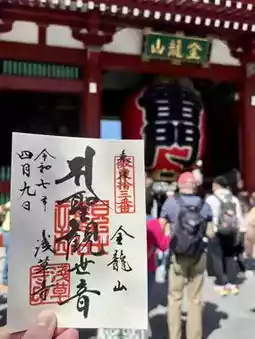 金龍山
門
奉拝
坂東拾三番
金龍山
聖観世音
浅草寺
令和七年
四月九日